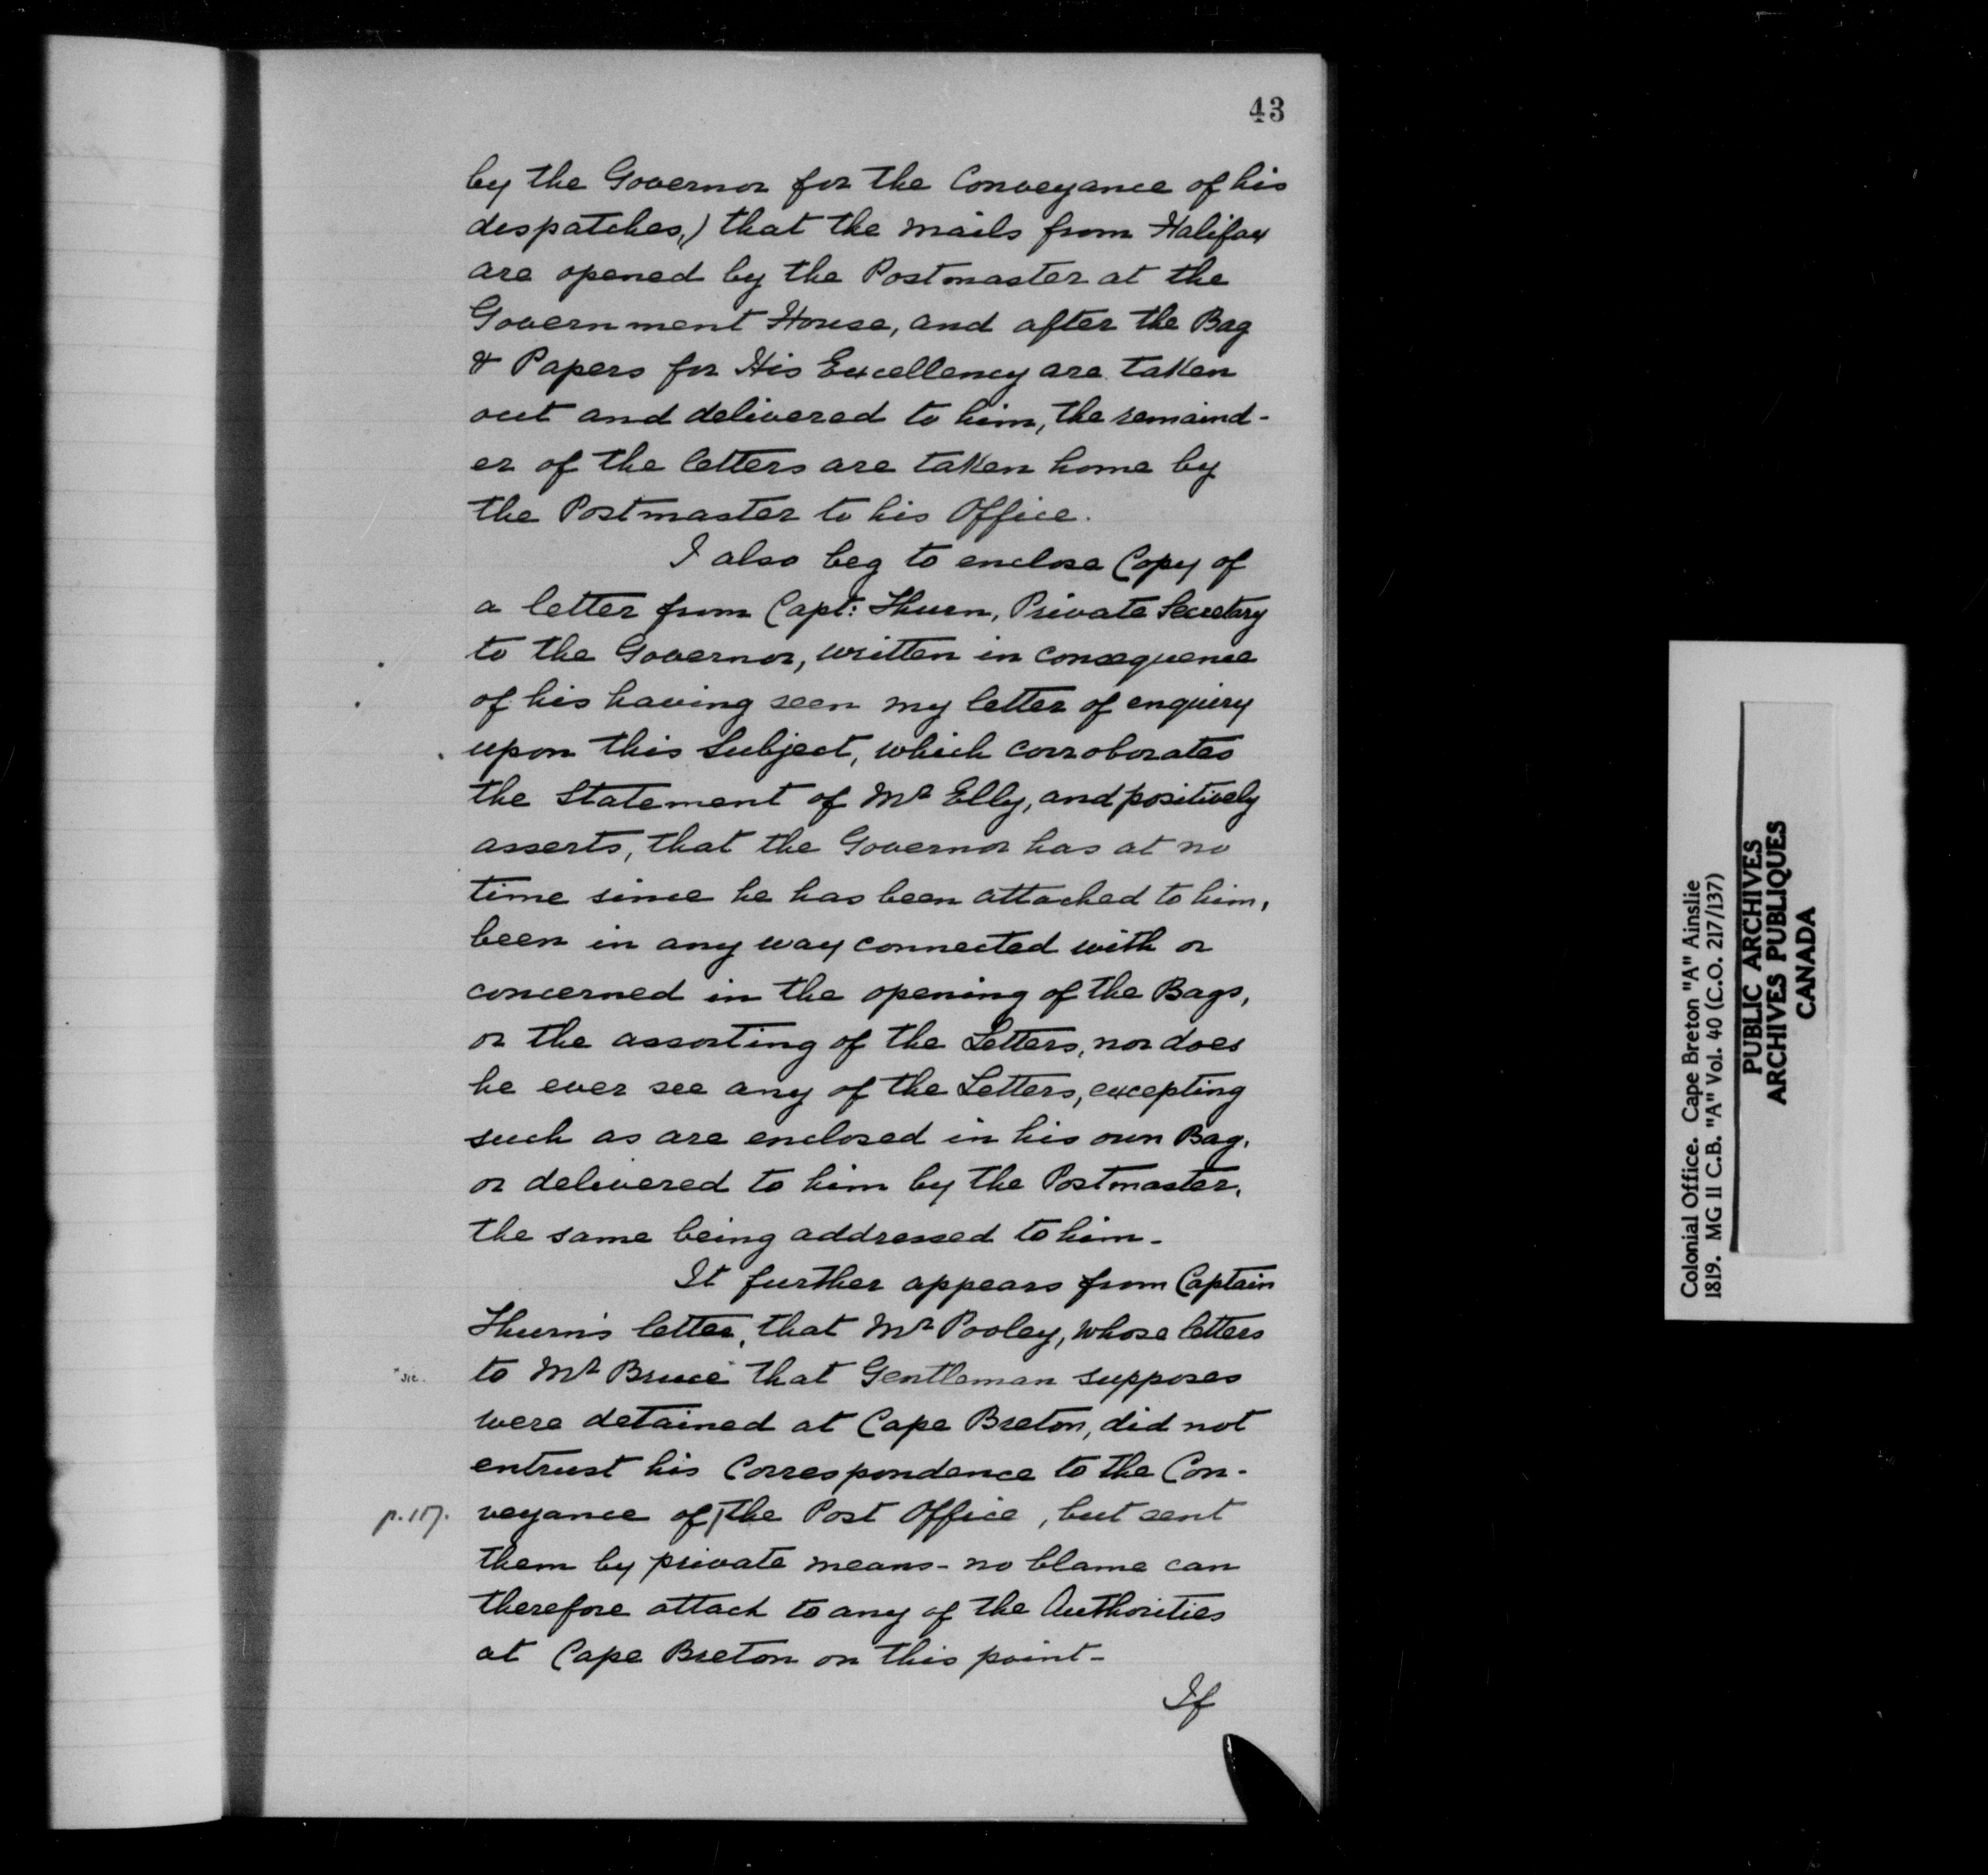 43
by the Governor for the Conveyance of his
despatches,) that the mails from Halifax
are opened by the Postmaster at the
Government House, and after the Bag
& Papers for His Excellency are taken
out and delivered to him, the remaind-
er of the letters are taken home by
the Postmaster to his Office.
I also beg to enclose Copy of
a letter from Capt: Thurn, Private Secretary
to the Governor, written in consequence
of his having seen my letter of enquiry
upon this Subject, which corroborates
the Statement of Mr Elly, and positively
asserts, that the Governor has at no
time since he has been attached to him,
been in any way connected with or
concerned in the opening of the Bags,
or the assorting of the Letters, nor does
he ever see any of the Letters, excepting
such as are enclosed in his own Bag,
or delivered to him by the Postmaster,
the same being addressed to him.
It further appears from Captain
Thurn's letter, that Mr Pooley, whose letters
sic. to Mr Bruce that Gentleman supposes
were detained at Cape Breton, did not
entrust his Correspondence to the Con-
p.117. veyance of the Post Office, but sent
them by private means - no blame can
therefore attach to any of the Authorities
at Cape Breton on this point -
If
Colonial Office. Cape Breton "A" Ainslie
1819. MG 11 C.B. "A" Vol. 40 (C.O. 217/137)
PUBLIC ARCHIVES
ARCHIVES PUBLIQUES
CANADA